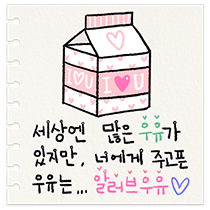 I ♡ U I ♡ U
세상엔 많은 우유가
있지만, 너에게 주고픈
우유는... 알러브우유♡